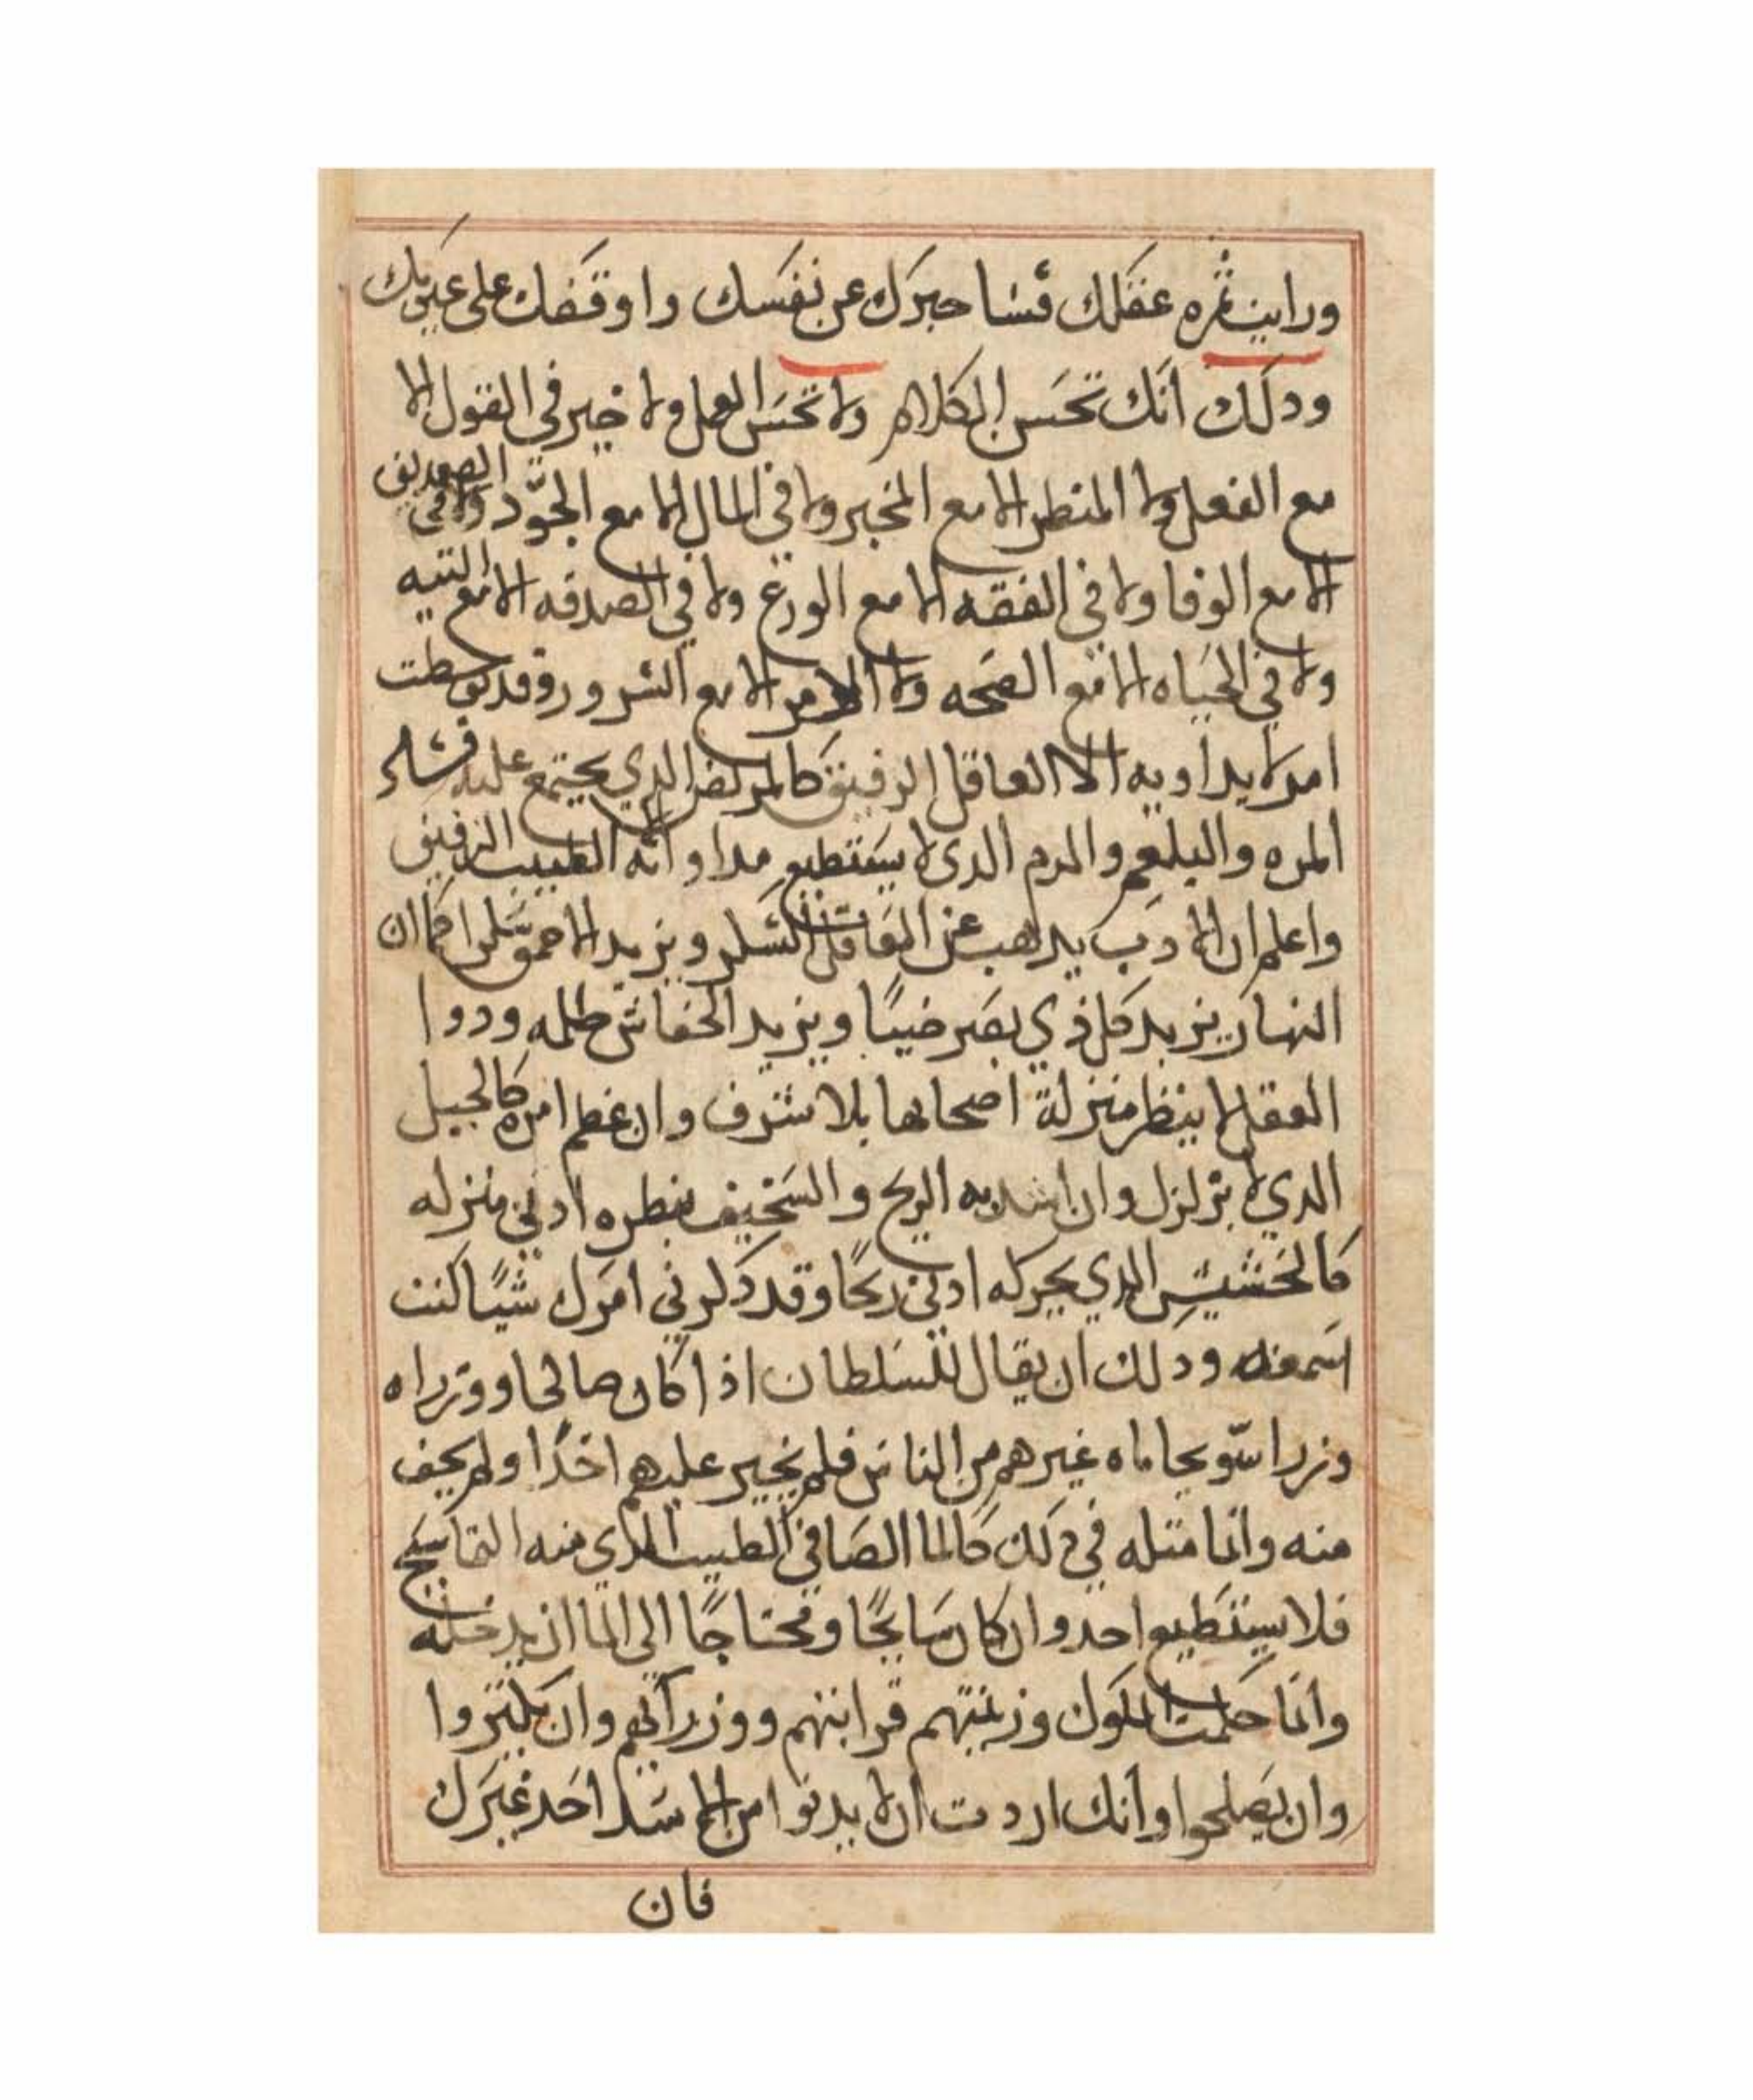 ورايت ثمره عقلك فساخبرك عن نفسك واوقفك على عيوبك
ودلك انك تحسن الكلام ولا تحسن العمل ولا خير في القول الا
مع الفعل ولا المنظر الا مع المخبر ولا في المال الا مع الجود ولا في الصديق
الا مع الوفا ولا في الفقه الا مع الورع ولا في الصدقه الا مع النيه
ولا في الحياه الا مع الصحه ولا الامر الا مع السرور وقد
امر لا يداويه الا العاقل الرفيق كالمريض الدي يجتمع عليه
المره والبلغم والدم الدي لا يستطيع مداواته الطبيب الرفيق
واعلم ان الادب يدهب عن العاقل السكر ويزيد الاحمق سكرا كما ان
النهار يزيد كل ذي بصر ضيا ويزيد الخفاش ظلمه ودوا
العقل لا ينظر منزلة اصحابها بلا شرف وان عظم امره كالجبل
الدي لا يتزلزل وان اشد به الريح والسخيف ينظره ادني منزله
كالحشيش الدي يحركه ادني ريحا وقد دكرني امرك شيا كنت
اسمعه ودلك ان يقال للسلطان اذا كان صالحا ووزراه
وزرا سو يحاماه غيرهم من الناس فلم عليهم احدا ولم يخف
منه وانما مثله في دلك كالما الصافي الطيب الدي فيه التماسيح
فلا يستطيع احد وان كان سابحا ومحتاجا الى الما ان يدخله
وانما الملوك وزينتهم قرابتهم ووزرآئهم وان يكثروا
وان يصلحوا وانك اردت ان لا يدنوا من الاسد احد غيرك
فان